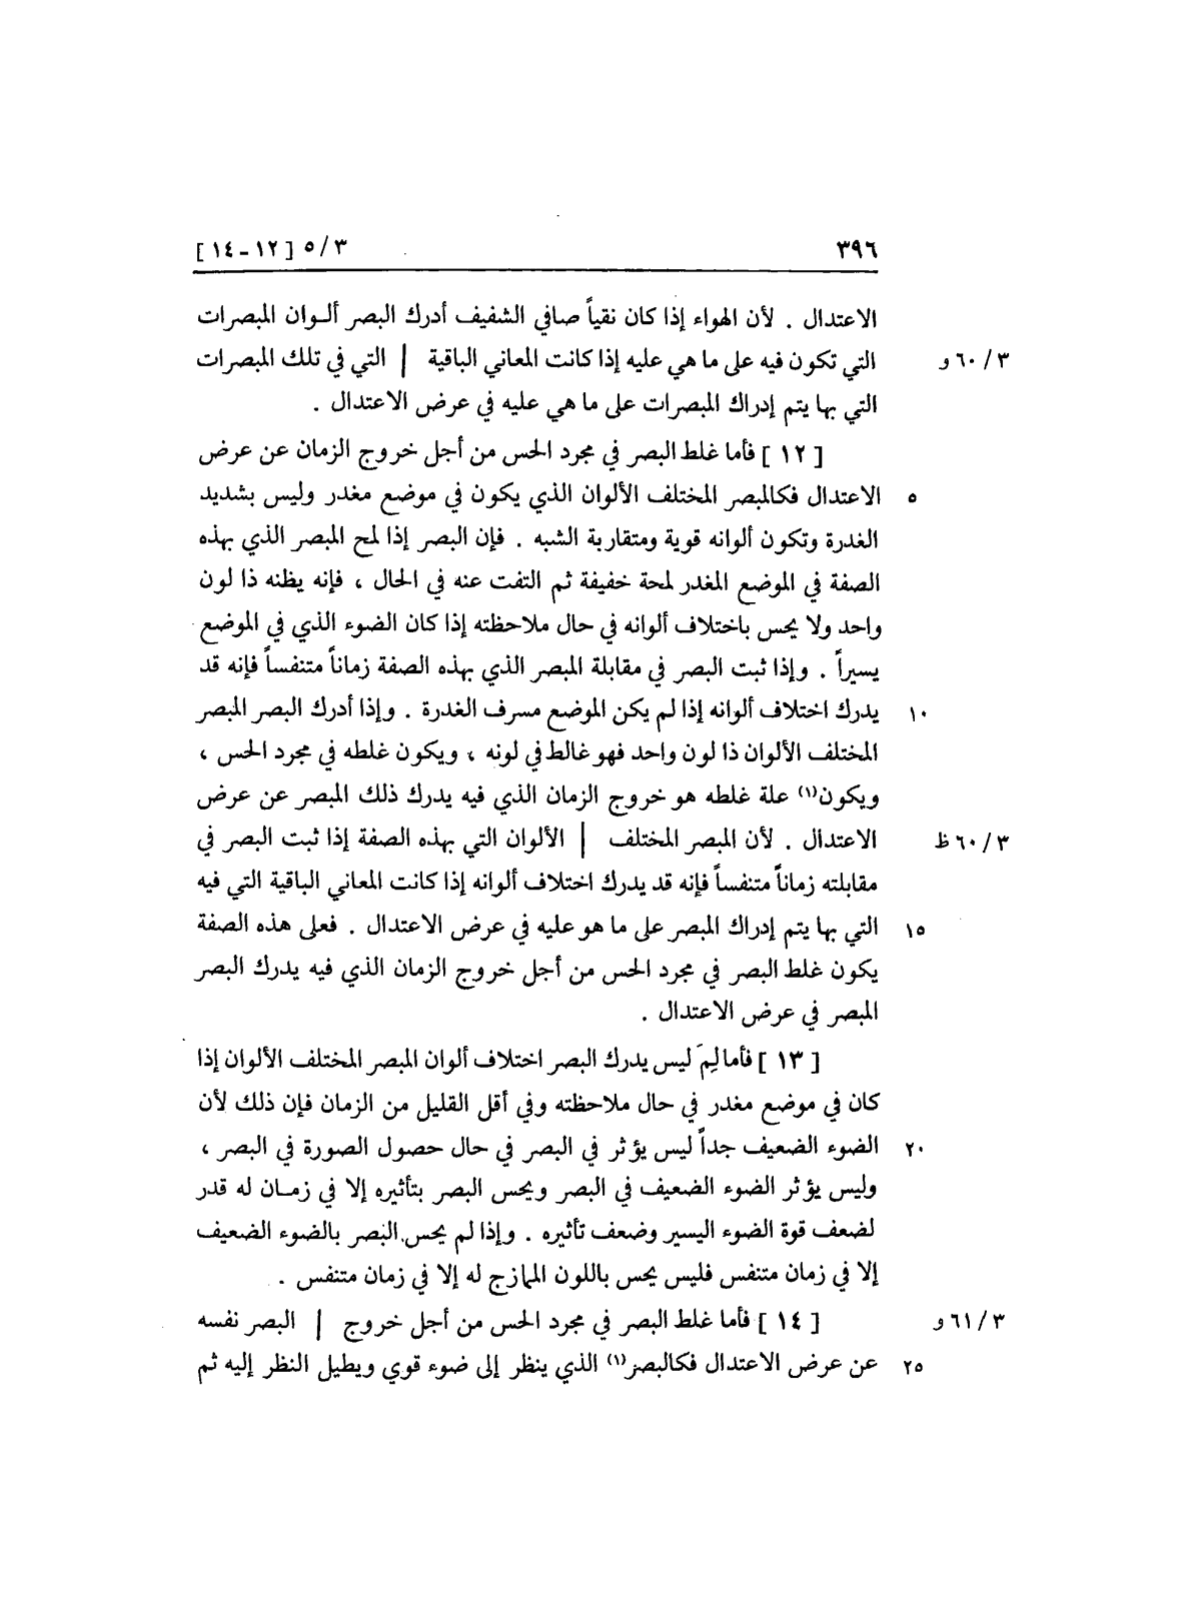 ٣٩٦ ٣/ ٥ [١٢ - ١٤]
الاعتدال . لأن الهواء إذا كان نقياً صافي الشفيف أدرك البصر ألـوان المبصرات
٣/ ٦٠ و التي تكون فيه على ما هي عليه إذا كانت المعاني الباقية | التي في تلك المبصرات
التي بها يتم إدراك المبصرات على ما هي عليه في عرض الاعتدال .
[ ١٢ ] فأما غلط البصر في مجرد الحس من أجل خروج الزمان عن عرض
٥ الاعتدال فكالمبصر المختلف الألوان الذي يكون في موضع مغدر وليس بشديد
الغدرة وتكون ألوانه قوية ومتقاربة الشبه . فإن البصر إذا لمح المبصر الذي بهذه
الصفة في الموضع المغدر لمحة خفيفة ثم التفت عنه في الحال ، فإنه يظنه ذا لون
واحد ولا يحس باختلاف ألوانه في حال ملاحظته إذا كان الضوء الذي في الموضع
يسيراً . وإذا ثبت البصر في مقابلة المبصر الذي بهذه الصفة زماناً متنفساً فإنه قد
١٠ يدرك اختلاف ألوانه إذا لم يكن الموضع مسرف الغدرة . وإذا أدرك البصر المبصر
المختلف الألوان ذا لون واحد فهو غالط في لونه ، ويكون غلطه في مجرد الحس ،
ويكون(١) علة غلطه هو خروج الزمان الذي فيه يدرك ذلك المبصر عن عرض
٣/ ٦٠ ظ الاعتدال . لأن المبصر المختلف | الألوان التي بهذه الصفة إذا ثبت البصر في
مقابلته زماناً متنفساً فإنه قد يدرك اختلاف ألوانه إذا كانت المعاني الباقية التي فيه
١٥ التي بها يتم إدراك المبصر على ما هو عليه في عرض الاعتدال . فعلى هذه الصفة
يكون غلط البصر في مجرد الحس من أجل خروج الزمان الذي فيه يدرك البصر
المبصر في عرض الاعتدال .
[ ١٣ ] فأما لِمَ ليس يدرك البصر اختلاف ألوان المبصر المختلف الألوان إذا
كان في موضع مغدر في حال ملاحظته وفي أقل القليل من الزمان فإن ذلك لأن
٢٠ الضوء الضعيف جداً ليس يؤثر في البصر في حال حصول الصورة في البصر ،
وليس يؤثر الضوء الضعيف في البصر ويحس البصر بتأثيره إلا في زمـان له قدر
لضعف قوة الضوء اليسير وضعف تأثيره . وإذا لم يحس البصر بالضوء الضعيف
إلا في زمان متنفس فليس يحس باللون الممازج له إلا في زمان متنفس .
٣/ ٦١ و [ ١٤ ] فأما غلط البصر في مجرد الحس من أجل خروج | البصر نفسه
٢٥ عن عرض الاعتدال فكالبصر(١) الذي ينظر إلى ضوء قوي ويطيل النظر إليه ثم